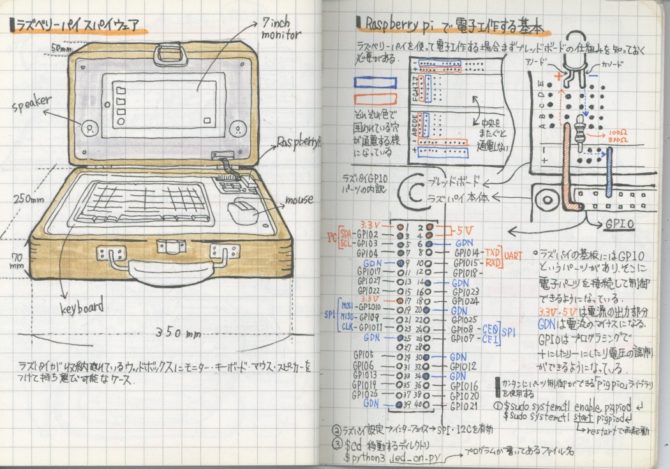 ラズベリーパイスパイウェア
7inch
monitor
50mm
speaker
Raspberrypi
250mm
mouse
70
mm
keyboard
350mm
ラズパイが収納されているウッドボックスにモニター・キーボード・マウス・スピーカーを
つけて持ち運び可能なケース。
Raspberry pi で電子工作する基本
ラズベリーパイを使って電子工作する場合まずブレッドボードの仕組みを知っておく
必要がある。
アノード
カソード
それぞれ色で
囲われている穴
が通電する様
になっている
中央を
またぐと
通電しない
100Ω
ラズパイGPIO
パーツの内訳
ブレッドボード
ラズパイ本体
GPIO
3.3V 1 2 5V
I²C SDA GPIO2 3 4
SCL GPIO3 5 6 GDN
GPIO4 7 8 GPIO14 TXD UART
GDN 9 10 GPIO15 RXD
GPIO17 11 12 GPIO18
GPIO27 13 14 GDN
GPIO22 15 16 GPIO23
3.3V 17 18 GPIO24
SPI MOSI GPIO10 19 20 GDN
MISO GPIO9 21 22 GPIO25
CLK GPIO11 23 24 GPIO8 CE0 SPI
GDN 25 26 GPIO7 CE1
27 28
GPIO5 29 30 GDN
GPIO6 31 32 GPIO12
GPIO13 33 34 GDN
GPIO19 35 36 GPIO16
GPIO26 37 38 GPIO20
GDN 39 40 GPIO21
ラズパイの基板にはGPIO
というパーツがあり、そこに
電子パーツを接続して制御
できるようになっている。
3.3V・5Vは電流の出力部分
GDNは電流のマイナスになる。
GPIOはプログラミングで
+にしたり-にしたり電圧の調整
ができるようになっている。
カンタンにパーツ制御ができる「pigpio」ライブラリ
を使用する
① $sudo systemctl enable pigpiod
$sudo systemctl start pigpiod
restartで再起動
② ラズパイ設定→インターフェイス→SPI・I2Cを有効
③ $cd 移動するディレクトリ
$python3 led_on.py
プログラムが書いてあるファイル名